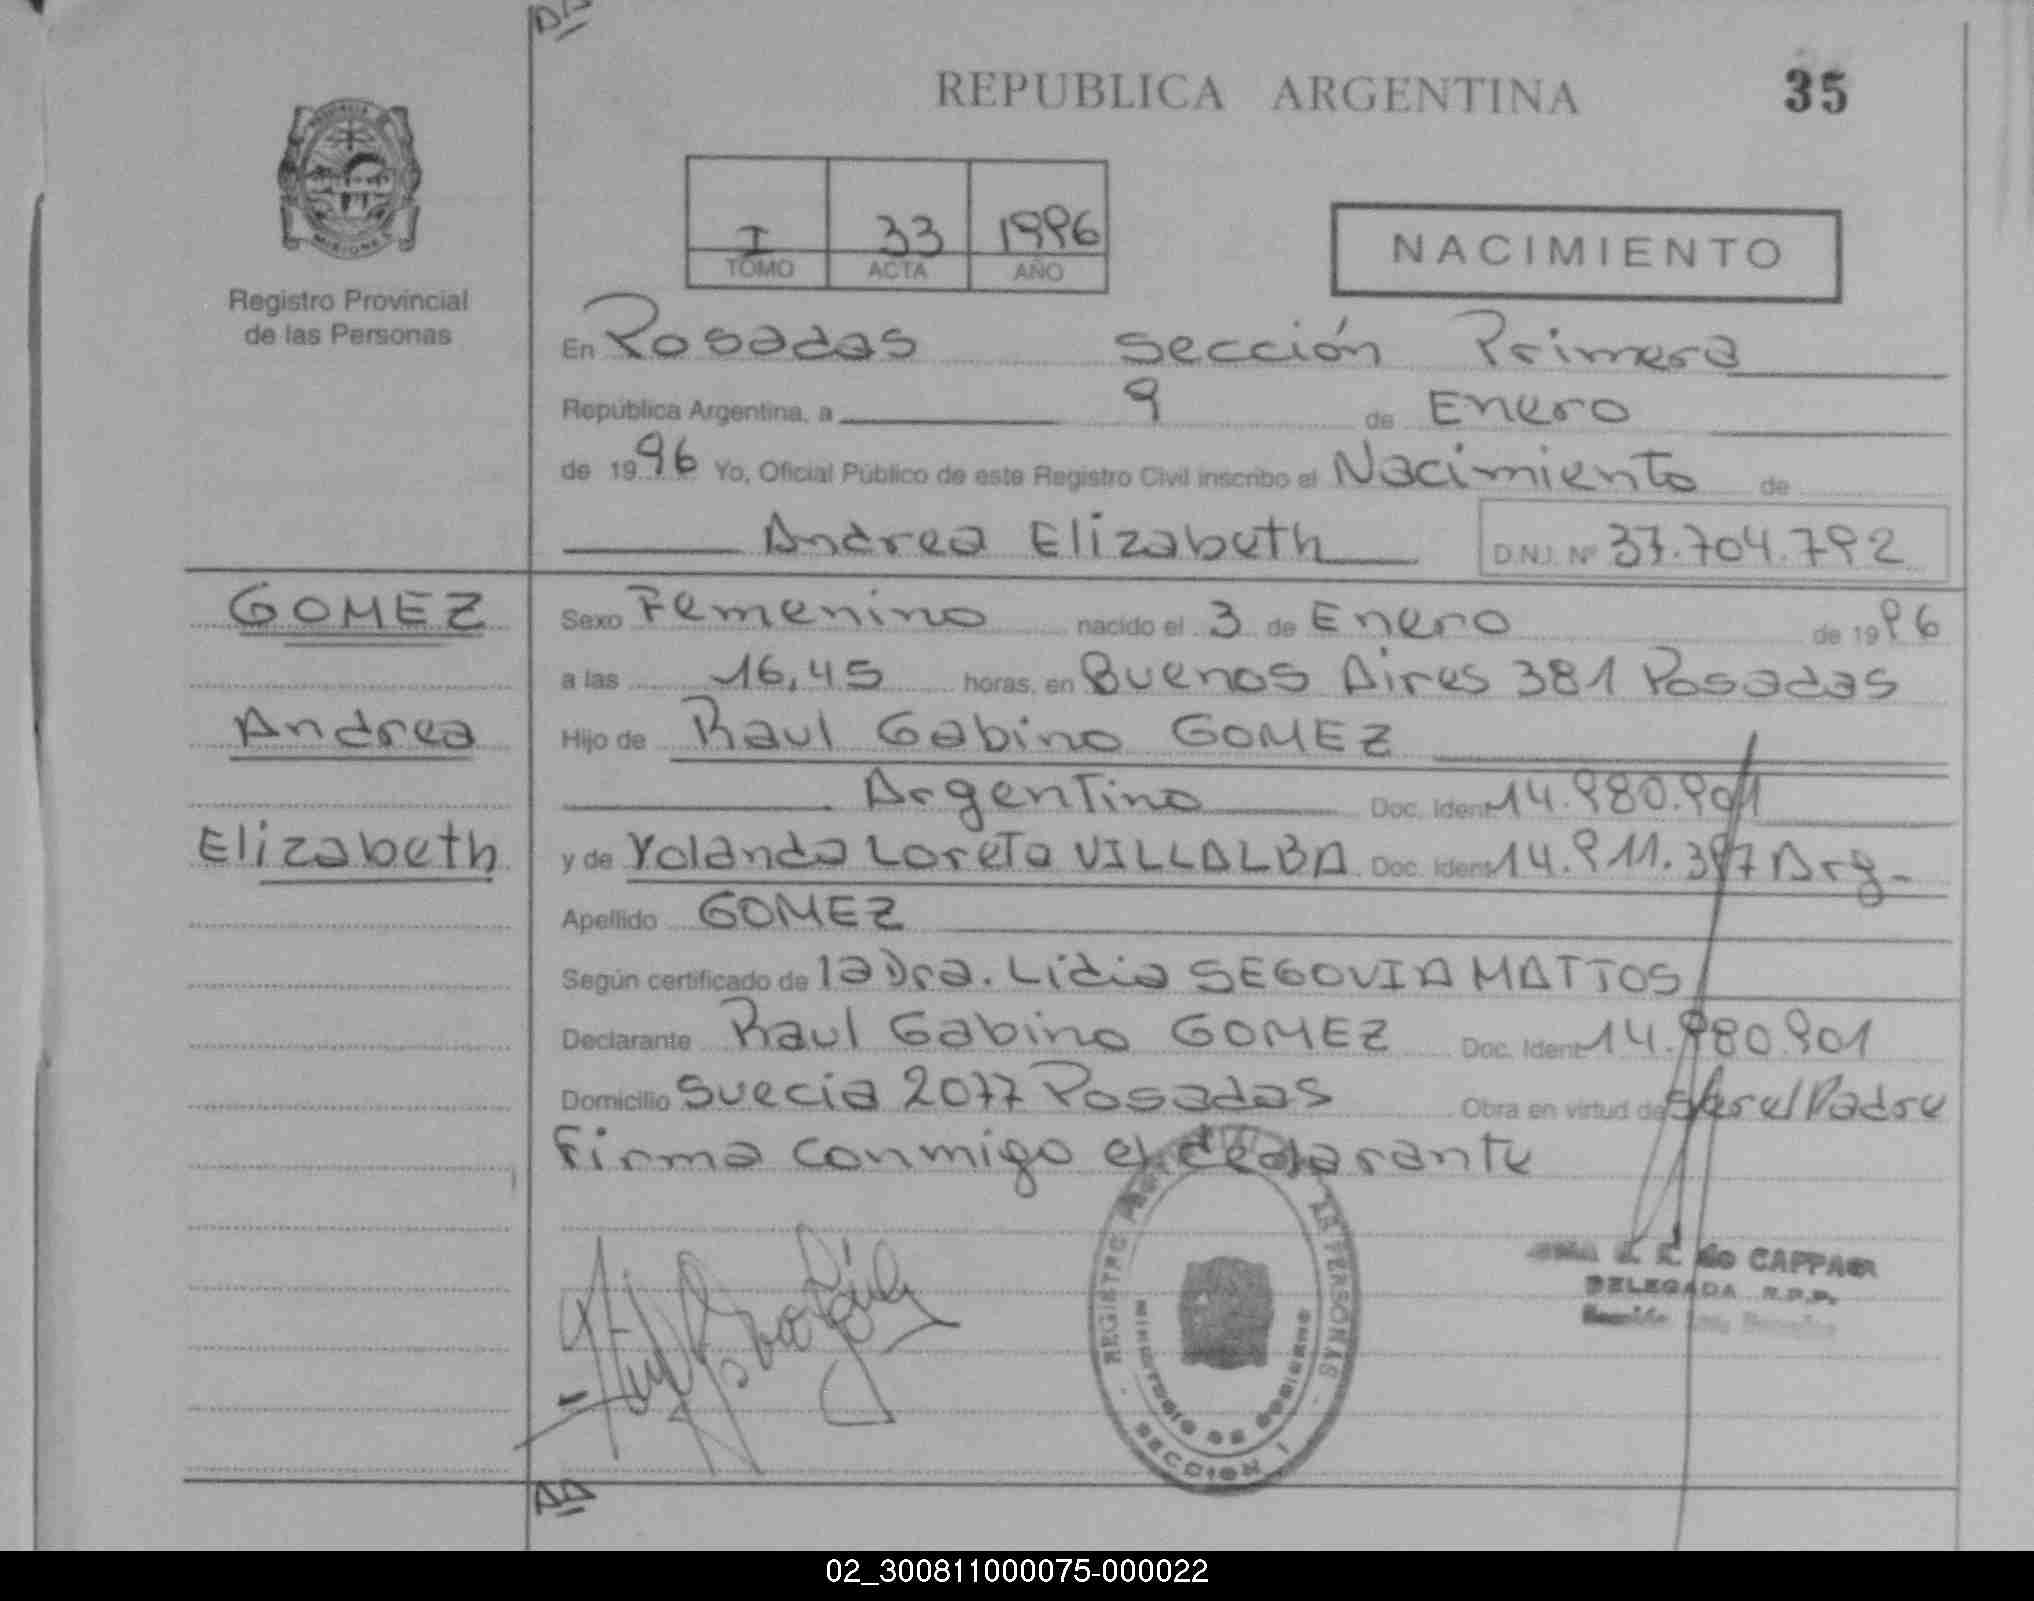 REPUBLICA ARGENTINA 35
PROVINCIA
MISIONES
Registro Provincial
de las Personas
I 33 1996
TOMO ACTA AÑO
NACIMIENTO
En Posadas sección Primera
República Argentina, a 9 de Enero
de 1996 Yo, Oficial Público de este Registro Civil inscribo el Nacimiento de
Andrea Elizabeth D.N.I. Nº 37.704.792
GOMEZ
Andrea
Elizabeth
Sexo Femenino nacido el 3 de Enero de 1996
a las 16,45 horas, en Buenos Aires 381 Posadas
Hijo de Raul Gabino GOMEZ
Argentino Doc. Ident. 14.980.901
y de Yolanda Loreto VILLALBA Doc. Ident. 14.911.397 Arg-
Apellido GOMEZ
Según certificado de la Dra. Lidia SEGOVIA MATTOS
Declarante Raul Gabino GOMEZ Doc. Ident. 14.980.901
Domicilio Suecia 2077 Posadas Obra en virtud de Ser el Padre
Firma conmigo el declarante
REGISTRO PERSONAS
MINISTERIO DE GOBIERNO
SECCION I
de CAPPA
DELEGADA R.P.P.
02_300811000075-000022